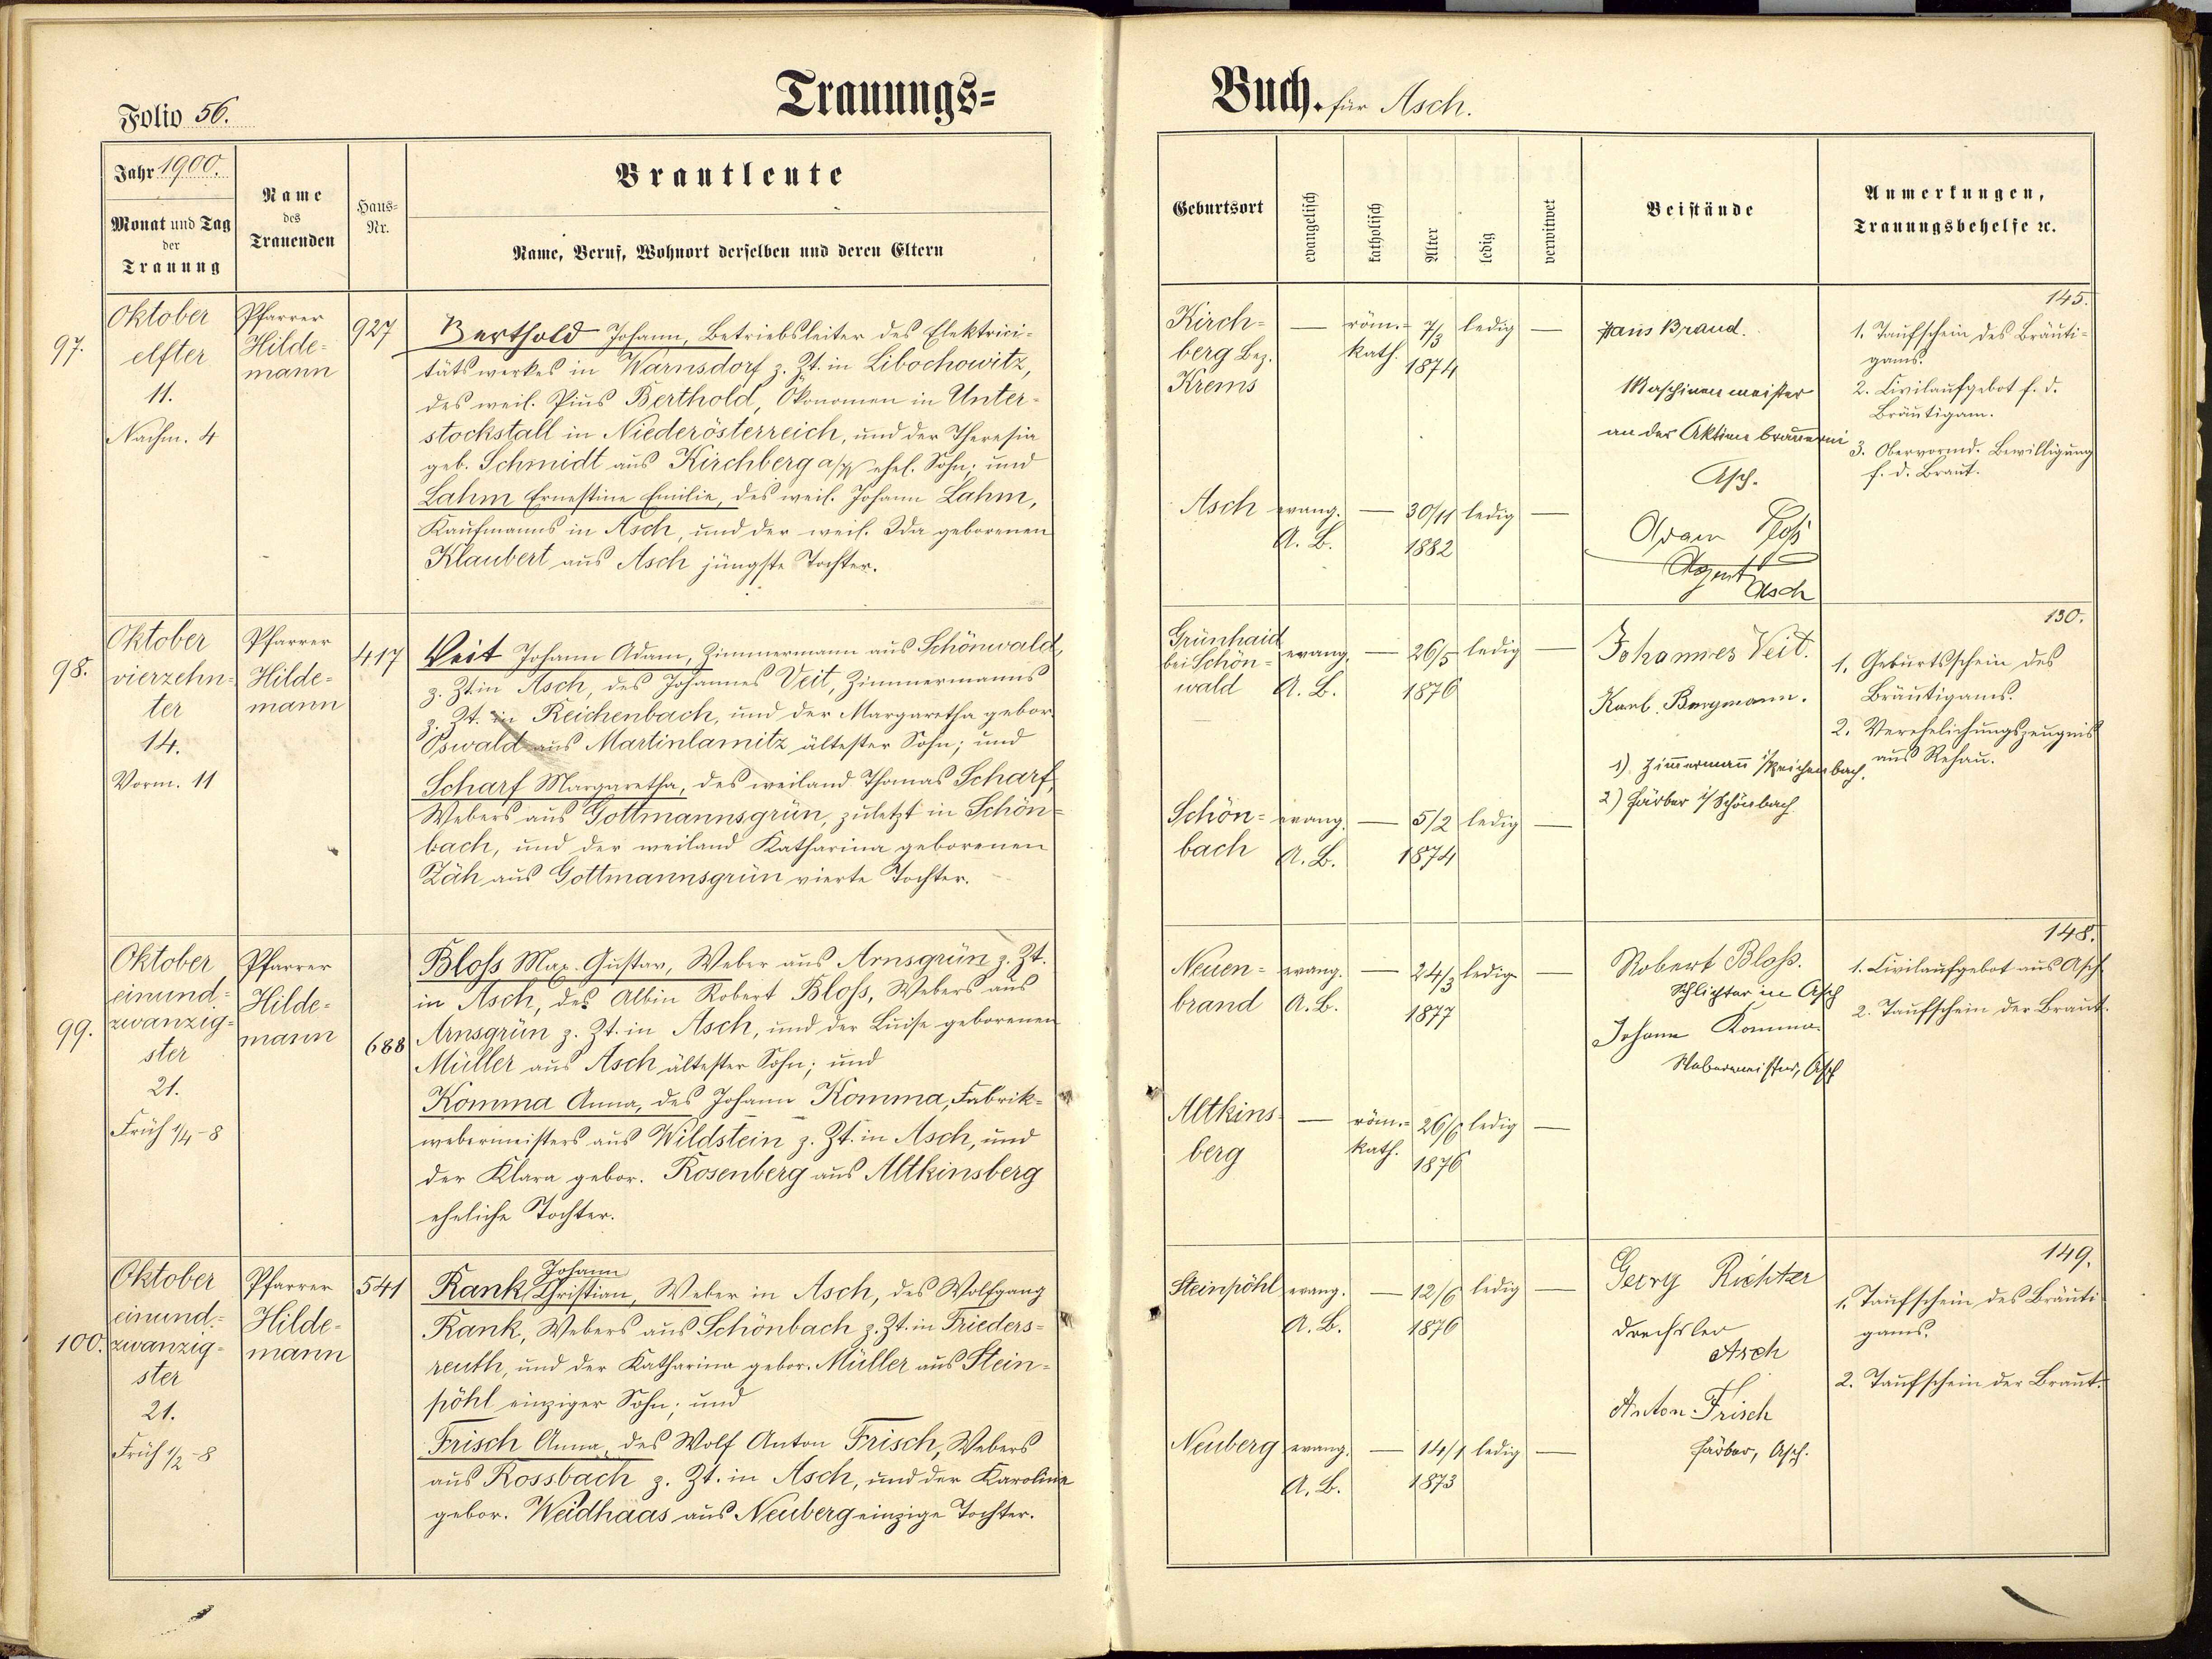 Folio 56.
Trauungs-
Buch. für Asch.
Jahr 1900.
Monat und Tag
der
Trauung
Name
des
Trauenden
Haus-
Nr.
Brautleute
Name, Beruf, Wohnort derselben und deren Eltern
Geburtsort
evangelisch
katholisch
Alter
ledig
verwitwet
Beistände
Anmerkungen,
Trauungsbehelfe ꝛc.
97.
Oktober
elfter
11.
Nachm. 4
Pfarrer
Hilde-
mann
927
Berthold Johann, Betriebsleiter des Elektrici-
tätswerkes in Warnsdorf z. Zt. in Libochowitz,
des weil. Pius Berthold, Ökonomen in Unter-
stockstall in Niederösterreich, und der Theresia
geb. Schmidt aus Kirchberg a/W ehel. Sohn; und
Lahm Ernestine Emilie, des weil. Johann Lahm,
Kaufmanns in Asch, und der weil. Ida geborenen
Klaubert aus Asch jüngste Tochter.
Kirch-
berg Bez.
Krems
— röm.-
kath.
7/3
1874
ledig —
Asch
evang.
A. B.
— 30/11
1882
ledig —
Hans Brand.
Maschinenmeister
an der Aktienbrauerei
Asch.
Adam Ploß
Agent
Asch
145.
1. Taufschein des Bräuti-
gams.
2. Civilaufgebot f. d.
Bräutigam.
3. Obervormd. Bewilligung
f. d. Braut.
98.
Oktober
vierzehn-
ter
14.
Vorm. 11
Pfarrer
Hilde-
mann
417
Veit Johann Adam, Zimmermann aus Schönwald,
z. Zt. in Asch, des Johannes Veit, Zimmermanns
z. Zt. in Reichenbach, und der Margaretha gebor.
Oswald aus Martinlamitz ältester Sohn; und
Scharf Margaretha, des weiland Thomas Scharf,
Webers aus Gottmannsgrün, zuletzt in Schön-
bach, und der weiland Katharina geborenen
Zäh aus Gottmannsgrün vierte Tochter.
Grünhaid
bei Schön-
wald
evang.
A. B.
— 26/5
1876
ledig —
Schön-
bach
evang.
A. B.
— 5/2
1874
ledig —
Johannes Veit.
Karl Bergmann.
1) Zimmermann i/Reichenbach.
2) Färber i/Schönbach
130.
1. Geburtsschein des
Bräutigams.
2. Verehelichungszeugnis
aus Rehau.
99.
Oktober
einund-
zwanzig-
ster
21.
Früh 1/4-8
Pfarrer
Hilde-
mann
688
Bloß Max Gustav, Weber aus Arnsgrün z. Zt.
in Asch, des Albin Robert Bloß, Webers aus
Arnsgrün z. Zt. in Asch, und der Luise geborenen
Müller aus Asch ältester Sohn; und
Komma Anna, des Johann Komma, Fabrik-
webermeisters aus Wildstein z. Zt. in Asch, und
der Klara gebor. Rosenberg aus Altkinsberg
eheliche Tochter.
Neuen-
brand
evang.
A. B.
— 24/3
1877
ledig —
Altkins-
berg
— röm.-
kath.
26/6
1876
ledig —
Robert Bloß.
Schlichter in Asch
Johann Komma
Webermeister, Asch
148.
1. Civilaufgebot aus Asch
2. Taufschein der Braut.
100.
Oktober
einund-
zwanzig-
ster
21.
Früh 1/2-8
Pfarrer
Hilde-
mann
541
Johann
Rank Christian, Weber in Asch, des Wolfgang
Rank, Webers aus Schönbach z. Zt. in Frieders-
reuth, und der Katharina gebor. Müller aus Stein-
pöhl einziger Sohn; und
Frisch Anna, des Wolf Anton Frisch, Webers
aus Rossbach z. Zt. in Asch, und der Karoline
gebor. Weidhaas aus Neuberg einzige Tochter.
Steinpöhl
evang.
A. B.
— 12/6
1876
ledig —
Neuberg
evang.
A. B.
— 14/1
1873
ledig —
Georg Richter
Drechsler
Asch
Anton Frisch
Färber, Asch.
149.
1. Taufschein des Bräuti
gams.
2. Taufschein der Braut.